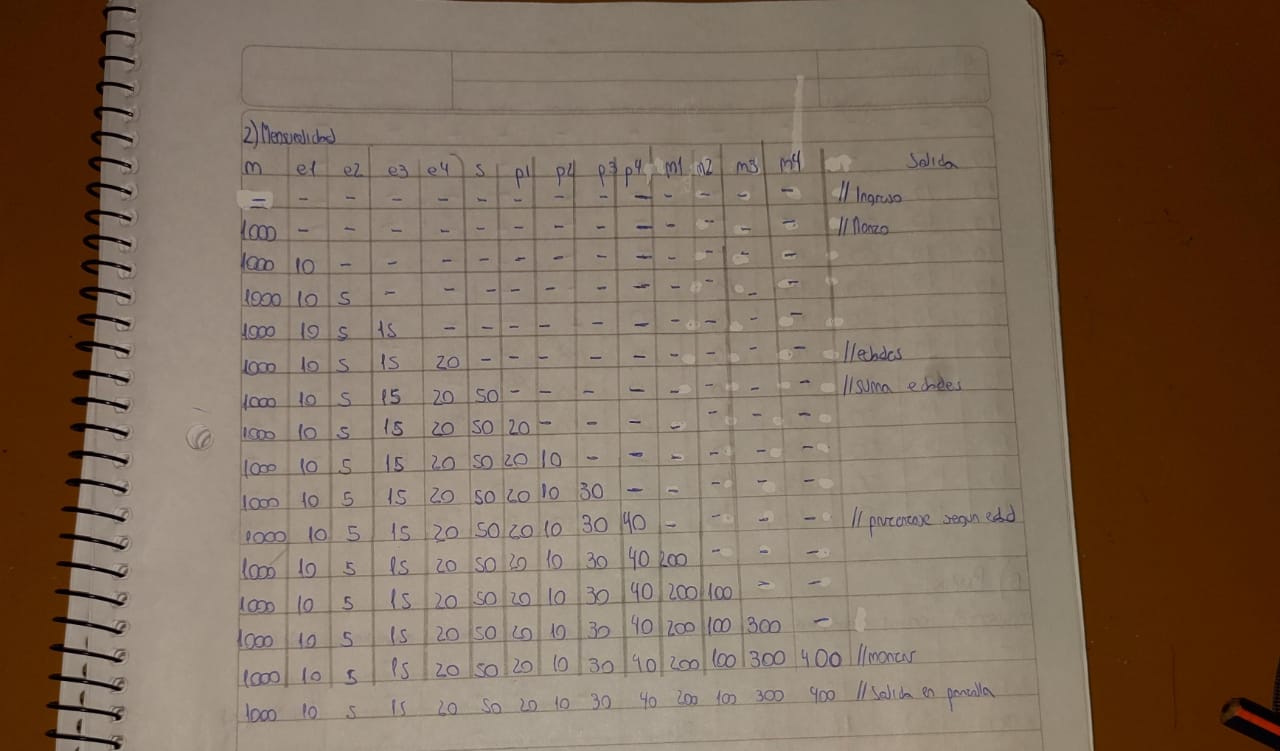 2) Mensualidad
m e1 e2 e3 e4 s p1 p2 p3 p4 m1 m2 m3 m4 Salida
= - - - - - - - - - - - - - // Ingreso
1000 - - - - - - - - - - - - - // Monto
1000 10 - - - - - - - - - - - -
1000 10 5 - - - - - - - - - - -
1000 10 5 15 - - - - - - - - - -
1000 10 5 15 20 - - - - - - - - - // edades
1000 10 5 15 20 50 - - - - - - - - // suma edades
1000 10 5 15 20 50 20 - - - - - - -
1000 10 5 15 20 50 20 10 - - - - - -
1000 10 5 15 20 50 20 10 30 - - - - -
1000 10 5 15 20 50 20 10 30 40 - - - - // segun edd
1000 10 5 15 20 50 20 10 30 40 200 - - -
1000 10 5 15 20 50 20 10 30 40 200 100 - -
1000 10 5 15 20 50 20 10 30 40 200 100 300 -
1000 10 5 15 20 50 20 10 30 40 200 100 300 400 //
1000 10 5 15 20 50 20 10 30 40 200 100 300 400 // Salida en panzalla